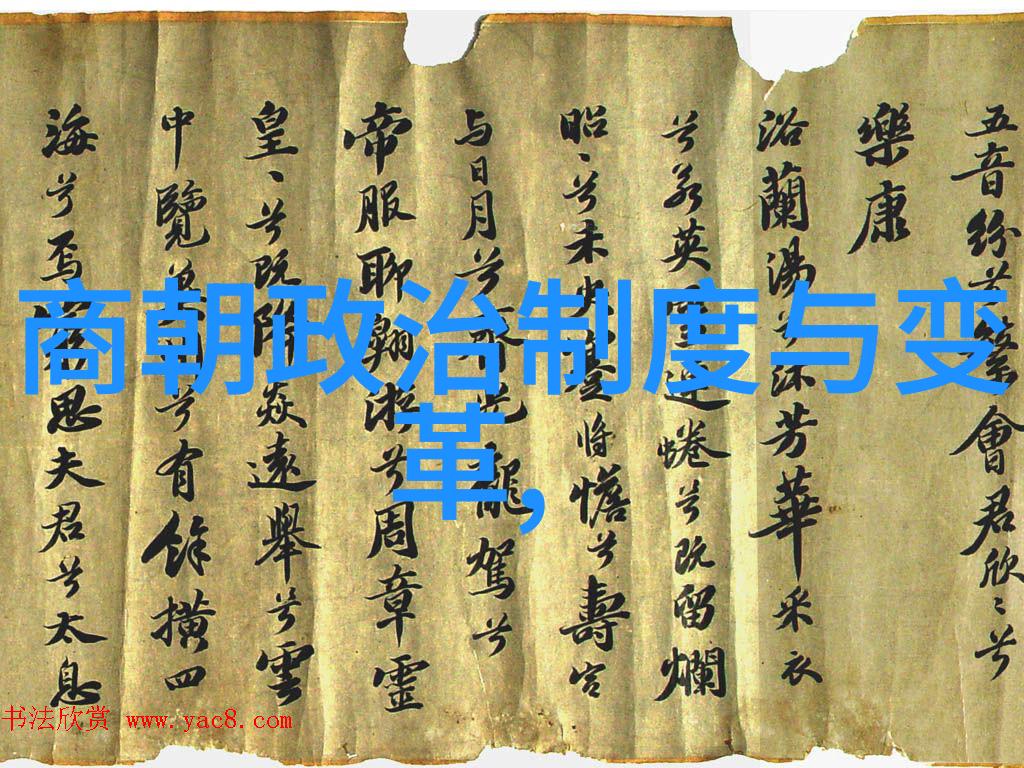 五音紛兮繁會君欣〻兮
樂康
浴蘭湯兮沐芳華采衣
兮若英靈連蜷兮既留爛
昭〻兮未央蹇將憺兮壽宮
与日月兮齊光龍駕兮
帝服聊翱遊兮周章靈
皇〻兮既降猋遠舉兮雲
中覽冀州兮有餘橫四
海兮焉窮思夫君兮太息
商朝政治制度与变
革,
书法欣赏 www.yac8.com